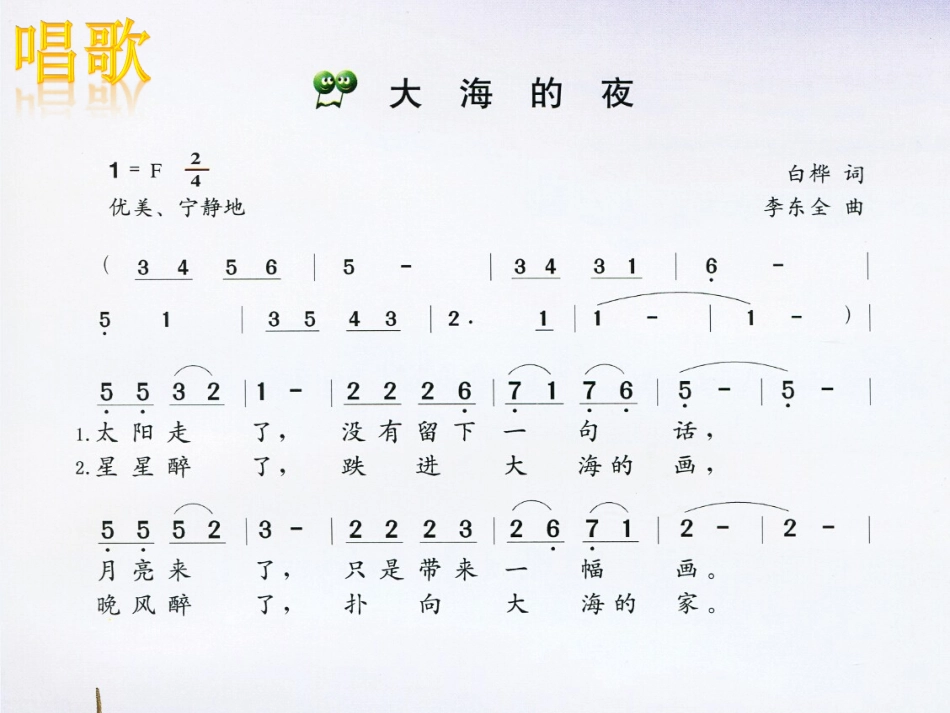 唱歌
大 海 的 夜
1 = F 2/4
白桦 词
优美、宁静地
李东全 曲
( 3 4 5 6 | 5 - | 3 4 3 1 | 6̣ - |
5̣ 1 | 3 5 4 3 | 2 . 1 | 1 - | 1 - ) |
5̣ 5̣ 3 2 | 1 - | 2 2 2 6̣ | 7̣ 1 7̣ 6̣ | 5̣ - | 5̣ - |
1.太 阳 走 了， 没 有 留 下 一 句 话，
2.星 星 醉 了， 跌 进 大 海 的 画，
5̣ 5̣ 5̣ 2 | 3 - | 2 2 2 3 | 2 6̣ 7̣ 1 | 2 - | 2 - |
月 亮 来 了， 只 是 带 来 一 幅 画。
晚 风 醉 了， 扑 向 大 海 的 家。